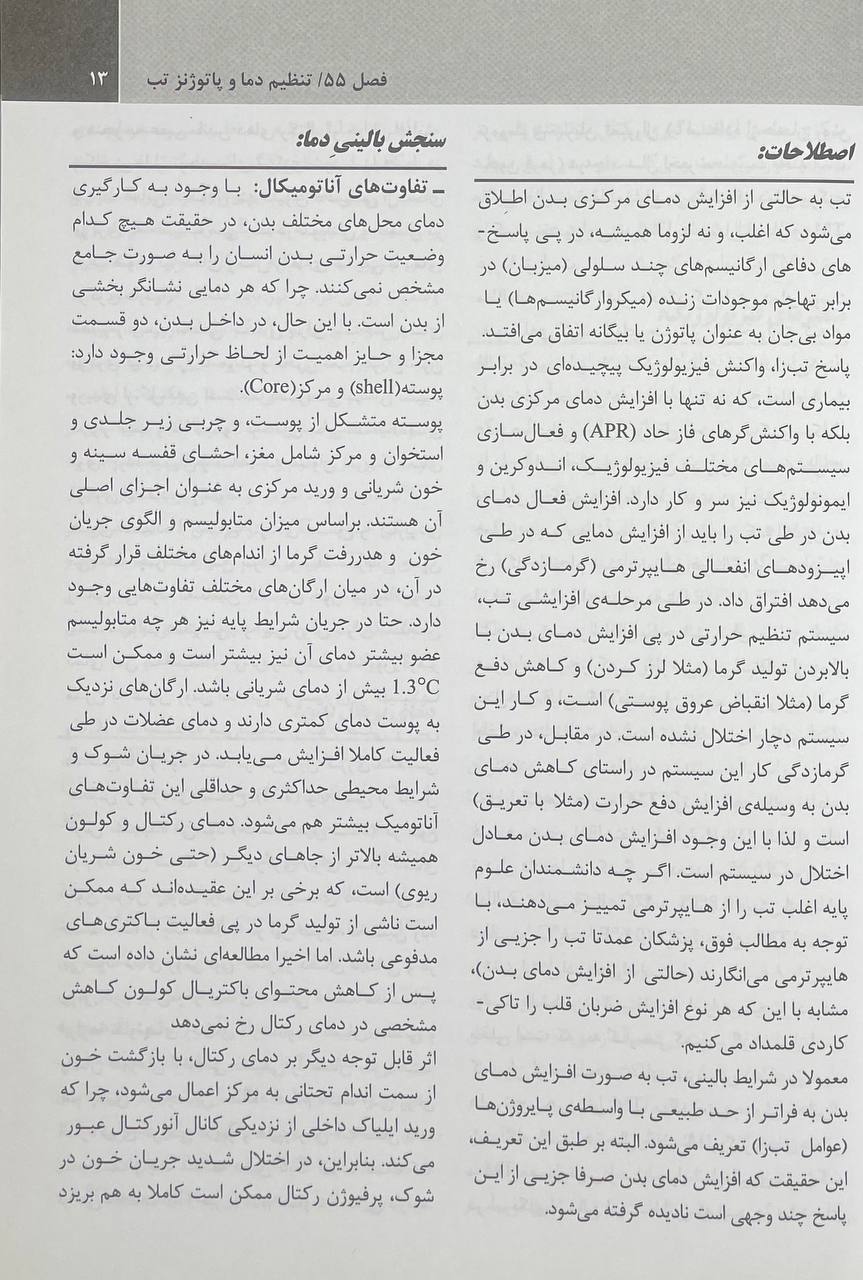 فصل ۵۵/ تنظیم دما و پاتوژنز تب
۱۳
اصطلاحات:
تب به حالتی از افزایش دمای مرکزی بدن اطلاق
می‌شود که اغلب، و نه لزوما همیشه، در پی پاسخ-
های دفاعی ارگانیسم‌های چند سلولی (میزبان) در
برابر تهاجم موجودات زنده (میکروارگانیسم‌ها) یا
مواد بی‌جان به عنوان پاتوژن یا بیگانه اتفاق می‌افتد.
پاسخ تب‌زا، واکنش فیزیولوژیک پیچیده‌ای در برابر
بیماری است، که نه تنها با افزایش دمای مرکزی بدن
بلکه با واکنش‌گرهای فاز حاد (APR) و فعال‌سازی
سیستم‌های مختلف فیزیولوژیک، اندوکرین و
ایمونولوژیک نیز سر و کار دارد. افزایش فعال دمای
بدن در طی تب را باید از افزایش دمایی که در طی
اپیزودهای انفعالی هایپرترمی (گرمازدگی) رخ
می‌دهد افتراق داد. در طی مرحله‌ی افزایشی تب،
سیستم تنظیم حرارتی در پی افزایش دمای بدن با
بالابردن تولید گرما (مثلا لرز کردن) و کاهش دفع
گرما (مثلا انقباض عروق پوستی) است، و کار این
سیستم دچار اختلال نشده است. در مقابل، در طی
گرمازدگی کار این سیستم در راستای کاهش دمای
بدن به وسیله‌ی افزایش دفع حرارت (مثلا با تعریق)
است و لذا با این وجود افزایش دمای بدن معادل
اختلال در سیستم است. اگر چه دانشمندان علوم
پایه اغلب تب را از هایپرترمی تمییز می‌دهند، با
توجه به مطالب فوق، پزشکان عمدتا تب را جزیی از
هایپرترمی می‌انگارند (حالتی از افزایش دمای بدن)،
مشابه با این که هر نوع افزایش ضربان قلب را تاکی-
کاردی قلمداد می‌کنیم.
معمولا در شرایط بالینی، تب به صورت افزایش دمای
بدن به فراتر از حد طبیعی با واسطه‌ی پایروژن‌ها
(عوامل تب‌زا) تعریف می‌شود. البته بر طبق این تعریف،
این حقیقت که افزایش دمای بدن صرفا جزیی از این
پاسخ چند وجهی است نادیده گرفته می‌شود.
سنجش بالینیِ دما:
ـ تفاوت‌های آناتومیکال: با وجود به کارگیری
دمای محل‌های مختلف بدن، در حقیقت هیچ کدام
وضعیت حرارتی بدن انسان را به صورت جامع
مشخص نمی‌کنند. چرا که هر دمایی نشانگر بخشی
از بدن است. با این حال، در داخل بدن، دو قسمت
مجزا و حایز اهمیت از لحاظ حرارتی وجود دارد:
پوسته(shell) و مرکز(Core).
پوسته متشکل از پوست، و چربی زیر جلدی و
استخوان و مرکز شامل مغز، احشای قفسه سینه و
خون شریانی و ورید مرکزی به عنوان اجزای اصلی
آن هستند. براساس میزان متابولیسم و الگوی جریان
خون و هدررفت گرما از اندام‌های مختلف قرار گرفته
در آن، در میان ارگان‌های مختلف تفاوت‌هایی وجود
دارد. حتا در جریان شرایط پایه نیز هر چه متابولیسم
عضو بیشتر دمای آن نیز بیشتر است و ممکن است
1.3°C بیش از دمای شریانی باشد. ارگان‌های نزدیک
به پوست دمای کمتری دارند و دمای عضلات در طی
فعالیت کاملا افزایش می‌یابد. در جریان شوک و
شرایط محیطی حداکثری و حداقلی این تفاوت‌های
آناتومیک بیشتر هم می‌شود. دمای رکتال و کولون
همیشه بالاتر از جاهای دیگر (حتی خون شریان
ریوی) است، که برخی بر این عقیده‌اند که ممکن
است ناشی از تولید گرما در پی فعالیت باکتری‌های
مدفوعی باشد. اما اخیرا مطالعه‌ای نشان داده است که
پس از کاهش محتوای باکتریال کولون کاهش
مشخصی در دمای رکتال رخ نمی‌دهد
اثر قابل توجه دیگر بر دمای رکتال، با بازگشت خون
از سمت اندام تحتانی به مرکز اعمال می‌شود، چرا که
ورید ایلیاک داخلی از نزدیکی کانال آنورکتال عبور
می‌کند. بنابراین، در اختلال شدید جریان خون در
شوک، پرفیوژن رکتال ممکن است کاملا به هم بریزد